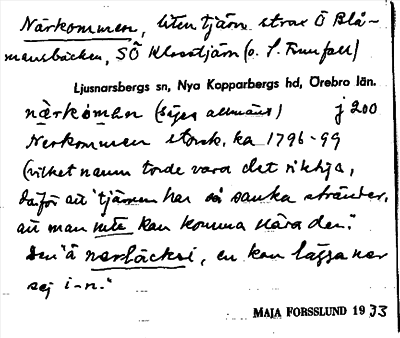 Närkommen, liten tjärn strax Ö Blå-
mansbäcken, SÖ Klosstjärn (o. S. Finnfall)
Ljusnarsbergs sn, Nya Kopparbergs hd, Örebro län.
närkomən (säges allmänt) j 200
Nerkommen storsk. ka 1796-99
(vilket namn torde vara det riktiga,
därför att "tjärnen har så sanka stränder,
att man inte kan komma nära den."
Den "ä narläcksi, en kan lägga ner
sej i-n."
MAJA FORSSLUND 1933